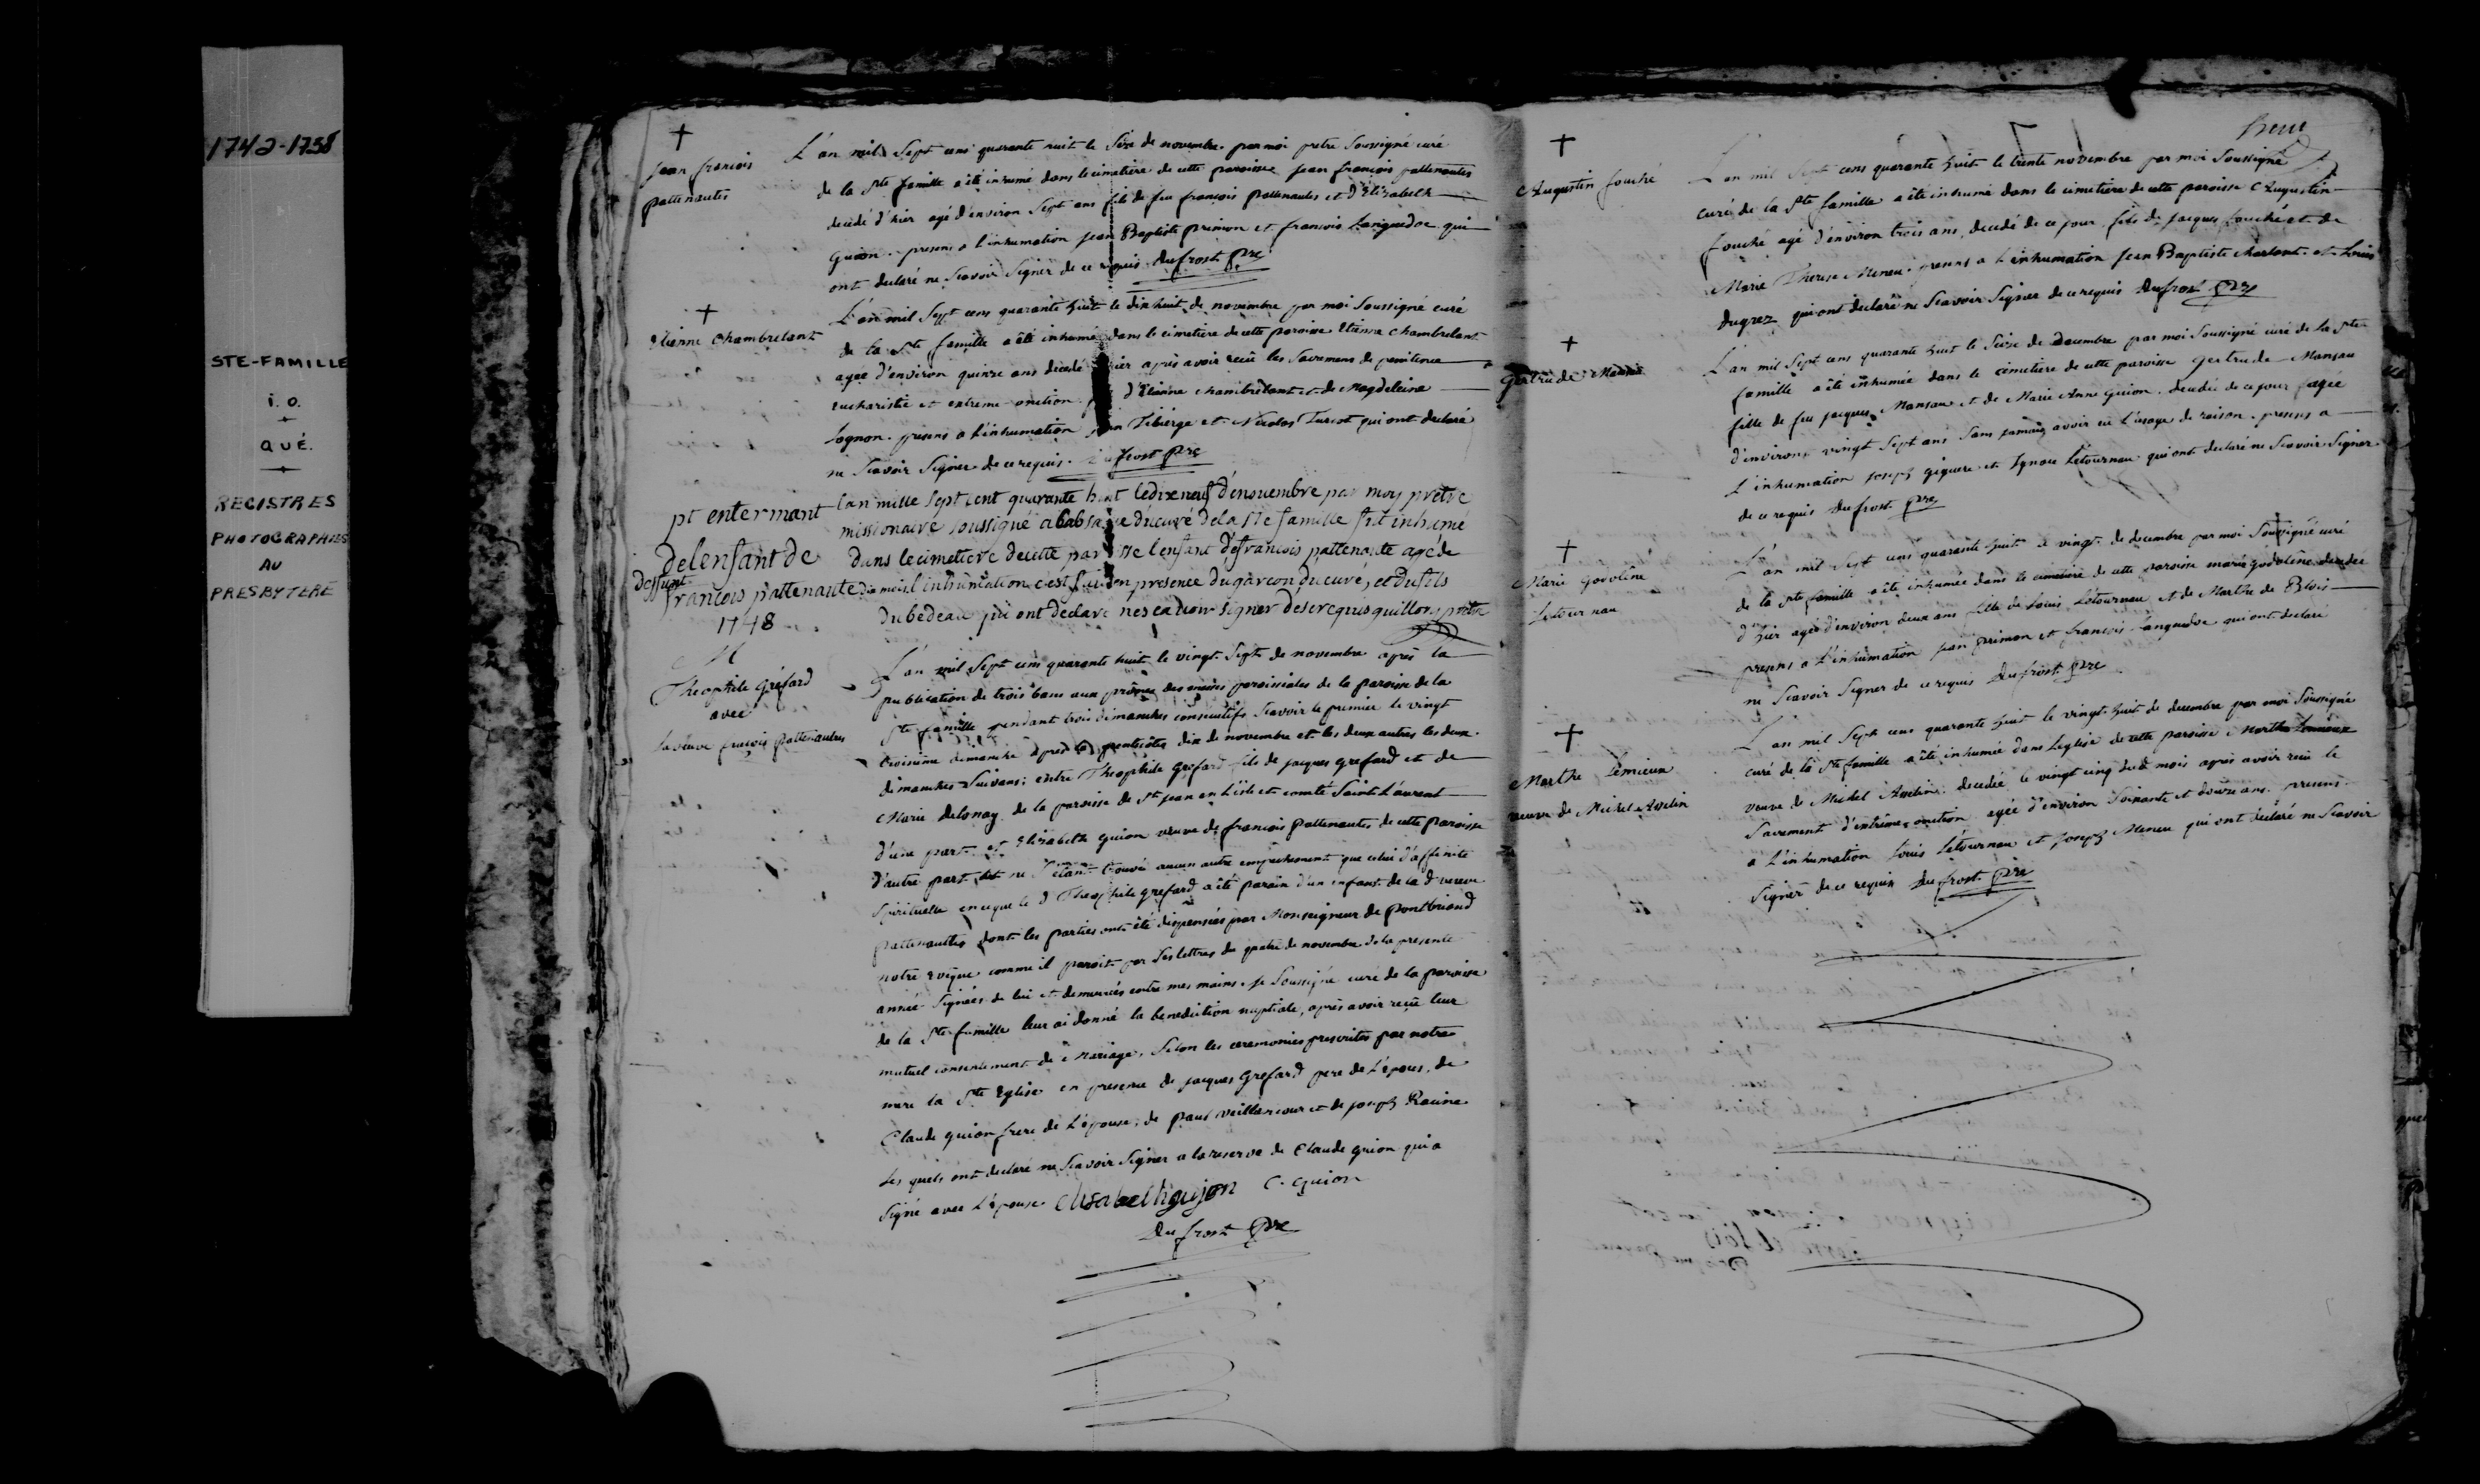 1742-1758
STE-FAMILLE
i. o.
QUÉ.
REGISTRES
PHOTOGRAPHIES
AU
PRESBYTERE
Jean francois
pattenautes
L'an mil Sept cens quarante huit le Sèze de novembre par moi pretre Soussigné curé
de la Ste famille a été inhumé dans le cimetière de cette paroisse Jean francois pattenautes
decedé d'hier agé d'environ Sept ans fils de feu francois Pattenautes et d'Elizabeth
Guion. presens a l'inhumation Jean Baptiste primon et francois Languedoc qui
ont declaré ne Scavoir Signer de ce requis. Dufrost Pre
Etienne Chambrelant
L'an mil Sept cens quarante huit le dix huit de novembre par moi Soussigné curé
de la Ste famille a été inhumé dans le cimetière de cette paroisse Etienne Chambrelant
agee d'environ quinze ans decedé hier après avoir reçû les Sacremens de penitence
eucharistie et extreme-onction. d'Etienne chambrelant et de Magdeleine
Lognon. presens a l'inhumation Tibierge et Nicolas Turcot qui ont declaré
ne Scavoir Signer de ce requis. Dufrost Pre
pt enterrmant
delenfant de
deffunt
francois pattenaute
1748
l'an mille sept cent quarante huit le dixneuf denovembre par moy prêtre
missionaire soussigné a labsance ducuré dela Ste famille fut inhumé
dans lecimetiere decette paroisse lenfant defrancois pattenaute agé de
dix mois. l'inhumation c'est faite en presence dugarcon ducuré, et dufils
du bedeau qui ont declaré nescavoir signer desce requis quillory prêtre
M
Theophile Grefard
avec
la veuve francois Pattenautes
L'an mil Sept cens quarante huit le vingt Sept de novembre après la
publication de trois bans aux prônes des messes paroissiales de la paroisse de la
Ste famille pendant trois dimanches consecutifs Scavoir le premier le vingt
troisieme dimanche après la pentecôtes dix de novembre et les deux autres les deux
dimanches Suivans; entre Theophile Grefard fils de jacques grefard et de
Marie delonay de la paroisse de St jean en L'isle et comté Saint Laurent
d'une part. et Elizabeth Guion veuve de francois Pattenautes de cette paroisse
d'autre part. ne S'étant trouvé aucun autre empechement que celui d'affinité
Spirituelle en ce que le d Theophile grefard a été parain d'un enfant de la d veuve
pattenautes dont les parties ont été dispensées par Monseigneur de Pontbriand
notre Evêque comme il paroit par Ses lettres du quatre de novembre de la presente
année Signées de lui et demeurées entre mes mains. Je Soussigné curé de la paroisse
de la Ste famille leur ai donné la benediction nuptiale, après avoir reçû leur
mutuel consentement de Mariage, Selon les ceremonies prescrites par notre
mere la Ste Eglise en presence de jacques Grefard pere de L'epoux, de
Claude guion frere de L'épouse, de paul Veillancour et de joseph Racine
Les quels ont declaré ne Scavoir Signer a la reserve de Claude guion qui a
Signé avec L'épouse. Elisabeth gujon C. Guion
Dufrost Pre
Augustin fouché
L'an mil Sept cens quarante huit le trente novembre par moi Soussigné
curé de la Ste famille a été inhumé dans le cimetière de cette paroisse Augustin
fouché agé d'environ trois ans, decedé de ce jour fils de jacques fouché et de
Marie Therese Meneu. presens a L'inhumation Jean Baptiste Charlant et Louis
Dugrez qui ont declaré ne Scavoir Signer de ce requis Dufrost Pre
Gertrude Mansau
L'an mil Sept cens quarante huit le Seize de Decembre par moi Soussigné curé de la Ste
famille a été inhumée dans le cimetiere de cette paroisse gertrude Mansau
fille de feu jacques Mansau et de Marie Anne Guion. decedée de ce jour agée
d'environ vingt Sept ans Sans jamais avoir eu l'usage de raison. presens a
L'inhumation joseph Giguere et Ignace Létourneau qui ont declaré ne Scavoir Signer
de ce requis Dufrost Pre
Marie Godolène
Letourneau
L'an mil Sept cens quarante huit le vingt de decembre par moi Soussigné curé
de la Ste famille a été inhumée dans le cimetiere de cette paroisse marie godolène decedée
d'hier agée d'environ deux ans fille de Louis Létourneau et de Marthe de Blois
presens a L'inhumation jean primon et francois Languedoc qui ont declaré
ne Scavoir Signer de ce requis Dufrost Pre
Marthe Lémieux
veuve de Michel Asselin
L'an mil Sept cens quarante huit le vingt huit de decembre par moi Soussigné
curé de la Ste famille a été inhumée dans L'eglise de cette paroisse Marthe Lemieux
veuve de Michel Asselin decedée le vingt cinq dud mois après avoir reçu le
Sacrement d'extrême-onction agée d'environ Soixante et douze ans. presens
a L'inhumation Louis Létourneau et joseph Meneu qui ont declaré ne Scavoir
Signer de ce requis Dufrost Pre